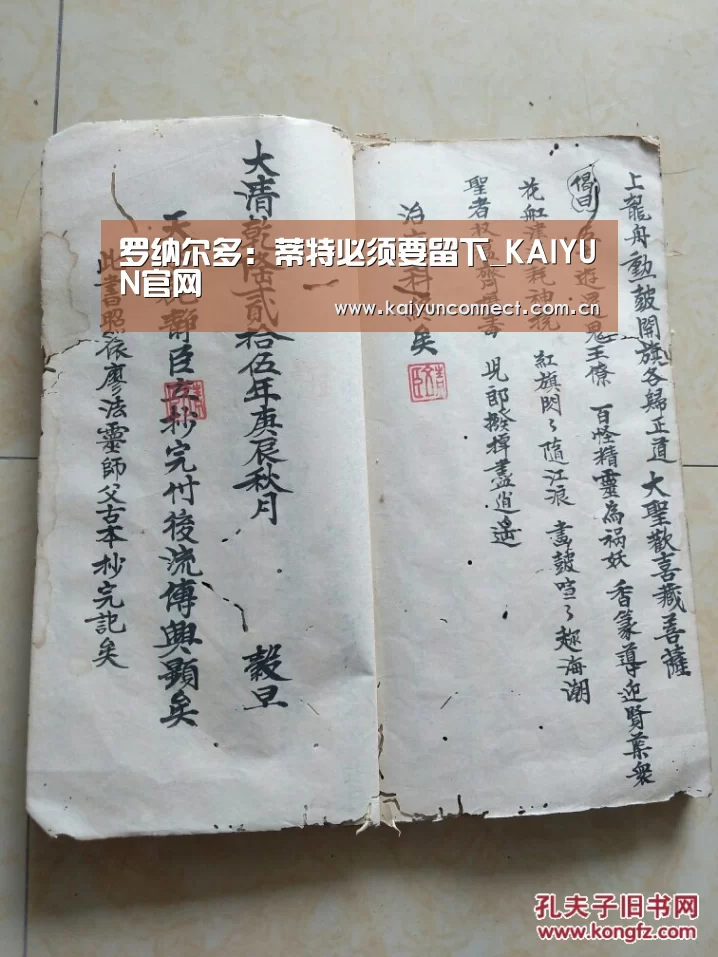 上龍舟動鼓開旗各歸正道 大聖歡喜藏菩薩
偈曰 遊還鬼王僚 百怪精靈為祸妖 香篆導迎賢聖眾
花舡 耗神 紅旗閃々隨江浪 畫鼓喧々趂海潮
聖者 兇郎撥棹盡逍遥
治 科 矣
大清乾隆貳拾伍年庚辰秋月 穀旦
天 靜臣立抄完付後流傳興顯矣
此書照依廖法靈師父古本抄完記矣
罗纳尔多：蒂特必须要留下_KAIYU
N官网
www.kaiyunconnect.com.cn
孔夫子旧书网
www.kongfz.com